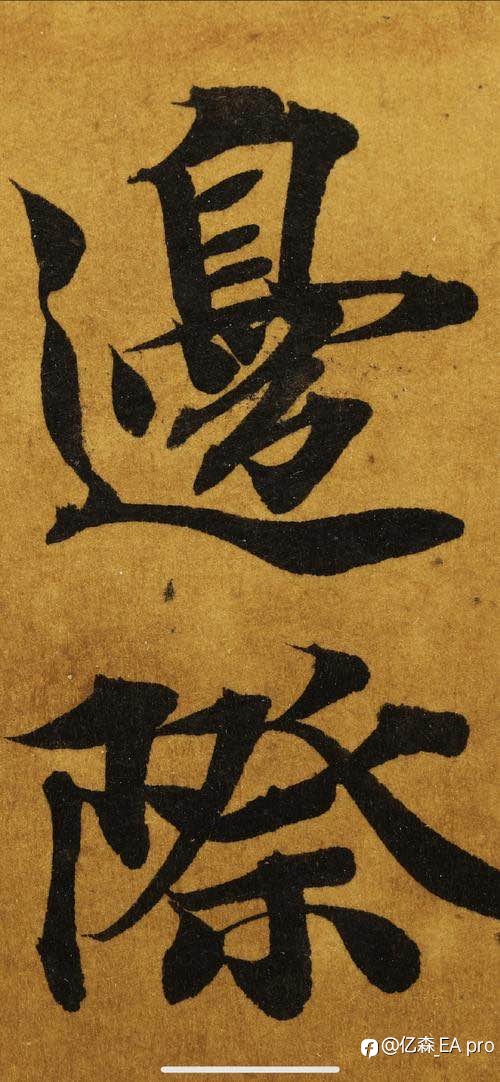 邊
際
@亿森_EA pro